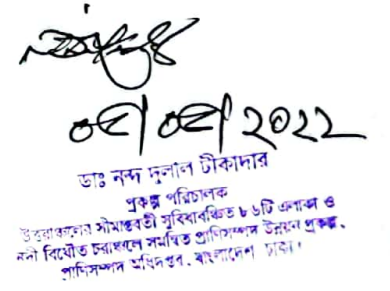 ২০২২
ডাঃ নন্দ দুলাল টীকাদার
প্রকল্প পরিচালক
উত্তরাঞ্চলের সীমান্তবর্তী সুবিধাবঞ্চিত ৮৬টি এলাকা ও
নদী বিধৌত চরাঞ্চলে সমন্বিত প্রাণিসম্পদ উন্নয়ন প্রকল্প,
প্রাণিসম্পদ অধিদপ্তর, বাংলাদেশ ঢাকা।